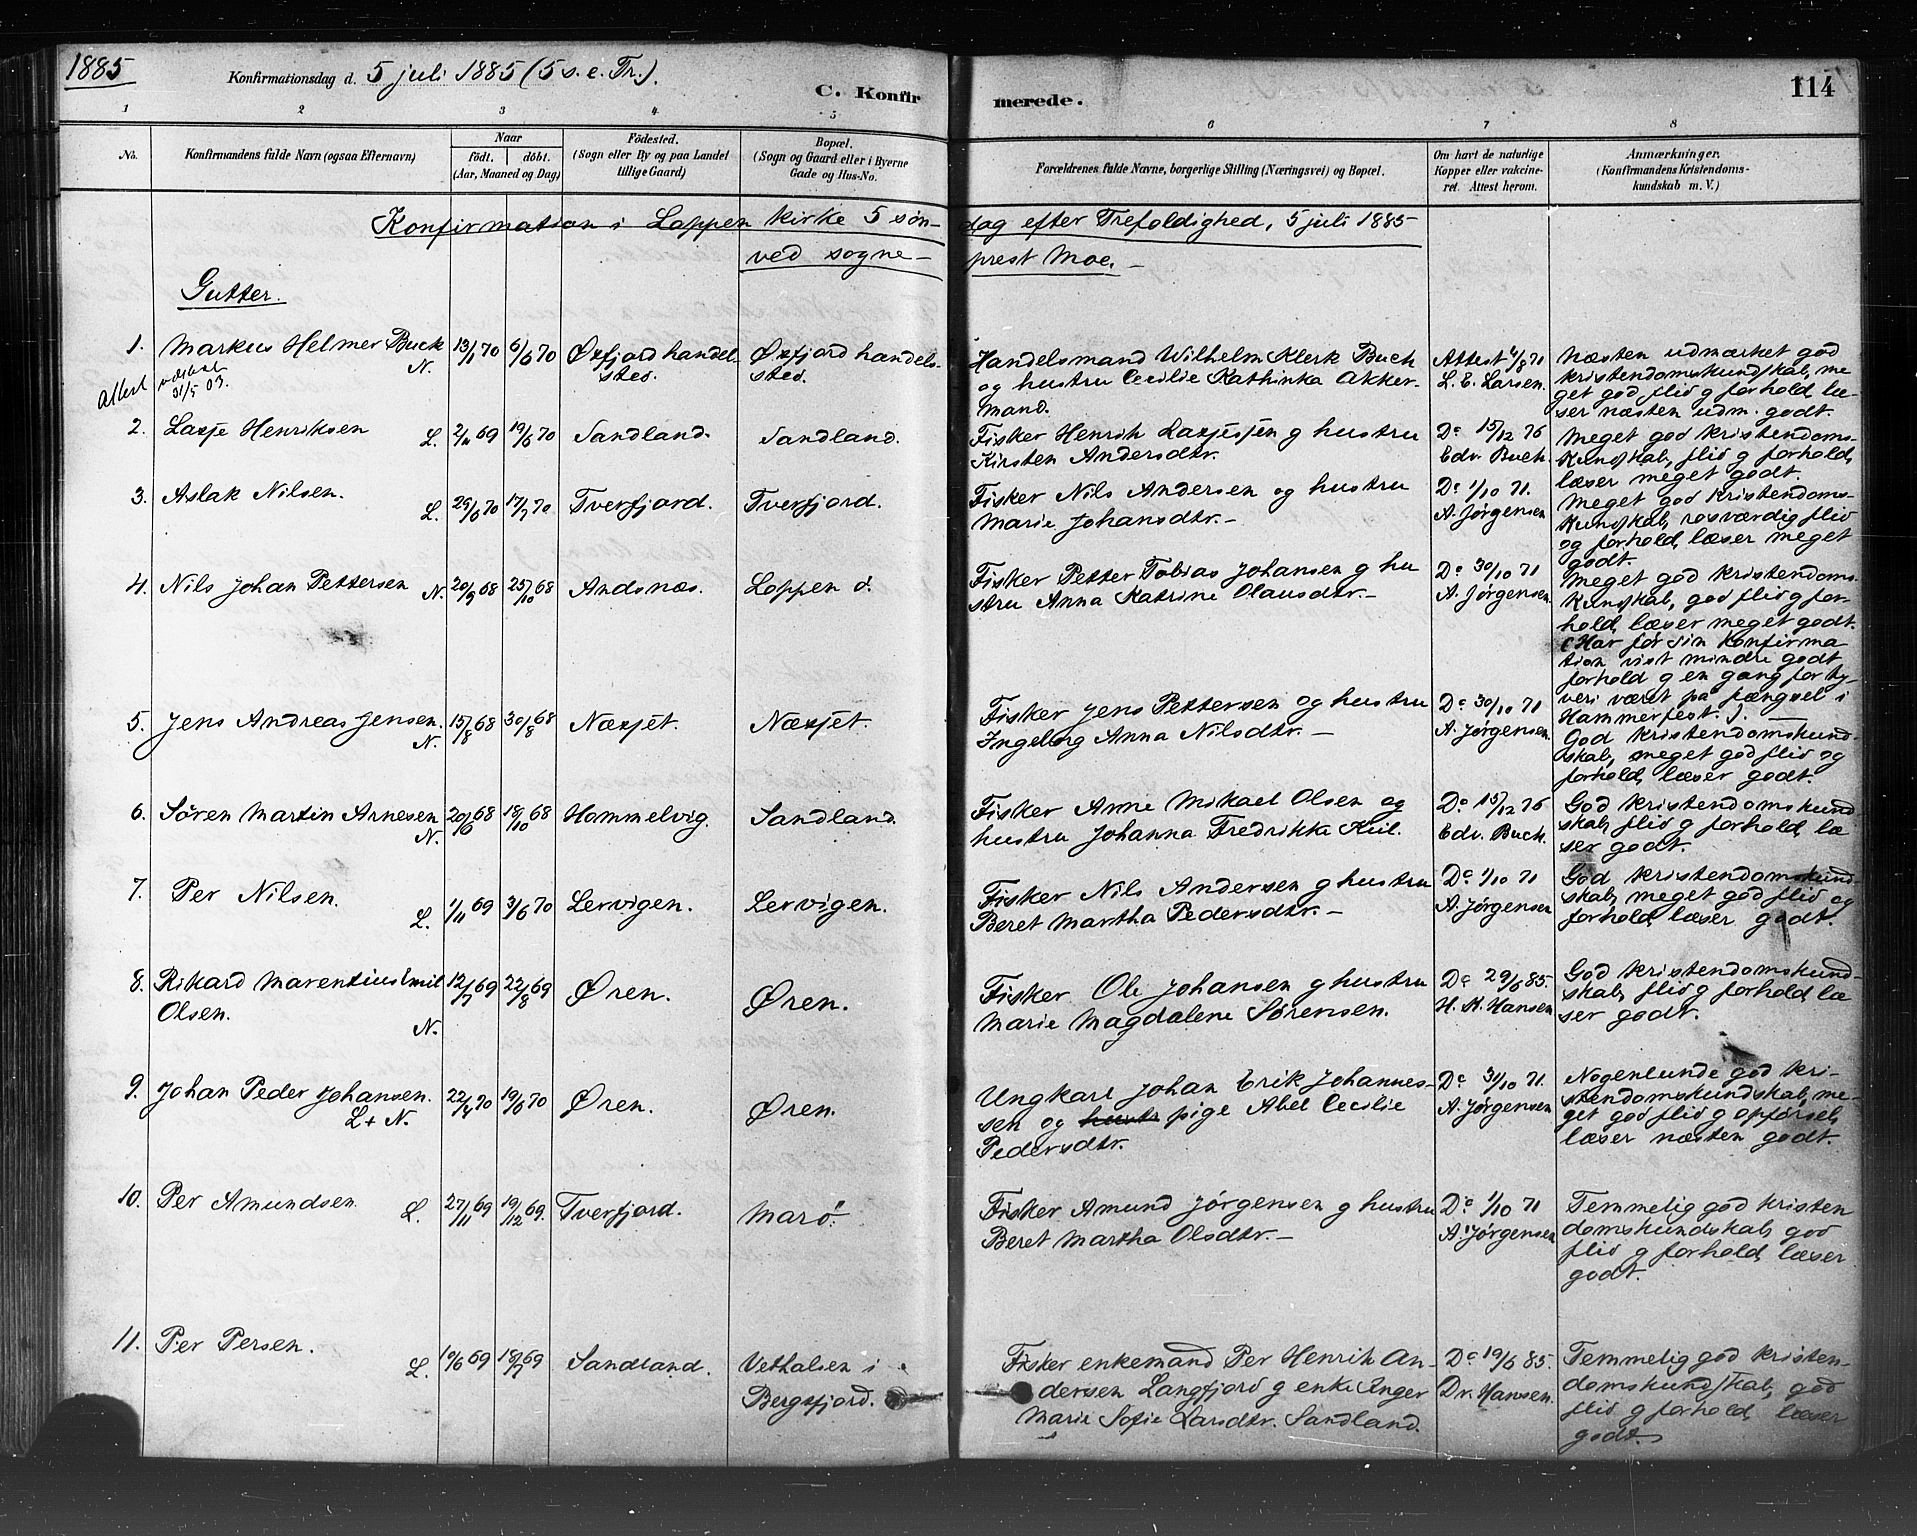 1885
Konfirmationsdag d. 5 juli 1885 (5 s. e. Tr.).
C. Konfir
merede.
114
1 2 3 4 5 6 7 8
No.
Konfirmandens fulde Navn (ogsaa Efternavn)
Naar
födt. döbt.
(Aar, Maaned og Dag)
Födested.
(Sogn eller By og paa Landet
tillige Gaard)
Bopæl.
(Sogn og Gaard eller i Byerne
Gade og Hus-No.
Forældrenes fulde Navne, borgerlige Stilling (Næringsvei) og Bopæl.
Om havt de naturlige
Kopper eller vakcine-
ret. Attest herom.
Anmærkninger.
(Konfirmandens Kristendoms-
kundskab m. V.)
Konfirmation i Loppen kirke 5 søn-
dag efter Trefoldighed, 5 juli 1885
ved sogne-
prest Moe. -
Gutter.
1. Markus Helmer Buck N.
Attest
31/5 03.
13/1 70 6/6 70
Øxfjord handel-
sted.
Øxfjord handels-
sted.
Handelsmand Wilhelm Klerk Buck
og hustru Cecilie Kathinka Akker-
mand.
Attest 4/8 71
L. E. Larsen.
Næsten udmærket god
kristendomskundskab, me
get god flid g forhold læ-
ser næsten udm. godt.
2. Lasje Henriksen L.
2/11 69 19/6 70
Sandland.
Sandland.
Fisker Henrik Lasjesjen g hustru
Kirsten Andersdtr.
Do 15/12 76
Edv. Buck.
Meget god kristendoms-
kundskab, flid g forhold,
læser meget godt.
3. Aslak Nilsen. L.
29/6 70 17/7 70
Tverfjord.
Tverfjord.
Fisker Nils Andersen og hustru
Marie Johansdtr. -
Do 1/10 71.
A. Jørgensen
Meget god kristendoms-
kundskab, rosværdig flid
og forhold, læser meget
godt.
4. Nils Johan Pettersen N.
20/9 68 25/10 68
Andsnæs.
Loppen ö.
Fisker Petter Tobias Johansen g hu
stru Anna Katrine Olausdtr. -
Do 30/10 71
A. Jørgensen.
Meget god kristendoms-
kundskab, god flid g for-
hold, læser meget godt.
(Har før sin konfirma
tion vist mindre godt
forhold g en gang for ty-
veri været på fængsel i
Hammerfest.). -
5. Jens Andreas Jensen. N.
15/8 68 30/8 68
Næsjet.
Næsjet.
Fisker Jens Pettersen og hustru
Ingeborg Anna Nilsdtr. -
Do 30/10 71
A. Jørgensen.
God kristendomskund-
skab, meget god flid og
forhold, læser godt.
6. Søren Martin Arnesen N.
20/6 68 18/10 68
Hommelvig.
Sandland.
Fisker Arne Mikael Olsen og
hustru Johanna Fredrikke Kiil.
Do 15/12 76
Edv. Buck.
God kristendomskund
skab, flid g forhold, læ
ser godt.
7. Per Nilsen. L.
1/11 69 3/6 70
Lervigen.
Lervigen.
Fisker Nils Andersen g hustru
Beret Martha Pedersdtr. -
Do 1/10 71
A. Jørgensen
God kristendomskund-
skab, meget god flid og
forhold, læser godt.
8. Rikard Marentius Emil
Olsen. N.
12/7 69 22/8 69
Øren.
Øren.
Fisker Ole Johansen g hustru
Marie Magdalene Sørensen.
Do 29/6 85.
H. H. Hansen
God kristendomskund-
skab, flid g forhold, læ
ser godt.
9. Johan Peder Johansen.
L + N.
22/4 70 19/6 70
Øren.
Øren.
Ungkarl Johan Erik Johannes-
sen og pige Abel Cecilie
Pedersdtr.
Do 31/10 71.
A. Jørgensen
Nogenlunde god kri-
stendomskundskab, me-
get god flid g opførsel,
læser næsten godt.
10. Per Amundsen. L.
27/11 69 19/12 69.
Tverfjord.
Marö.
Fisker Amund Jörgensen g hustru
Beret Martha Olsdtr. -
Do 1/10 71
A. Jørgensen
Temmelig god kristen
domskundskab, god
flid g forhold, læser
godt.
11. Per Persen. L.
10/6 69 18/7 69
Sandland.
Vethalsen i
Bergsfjord.
Fisker enkemand Per Henrik An-
dersen Langfjord g enke Inger
Marie Sofie Larsdtr. Sandland.
Do 19/6 85.
Dr. Hansen.
Temmelig god kristen-
domskundskab, god
flid g forhold, læser
godt.